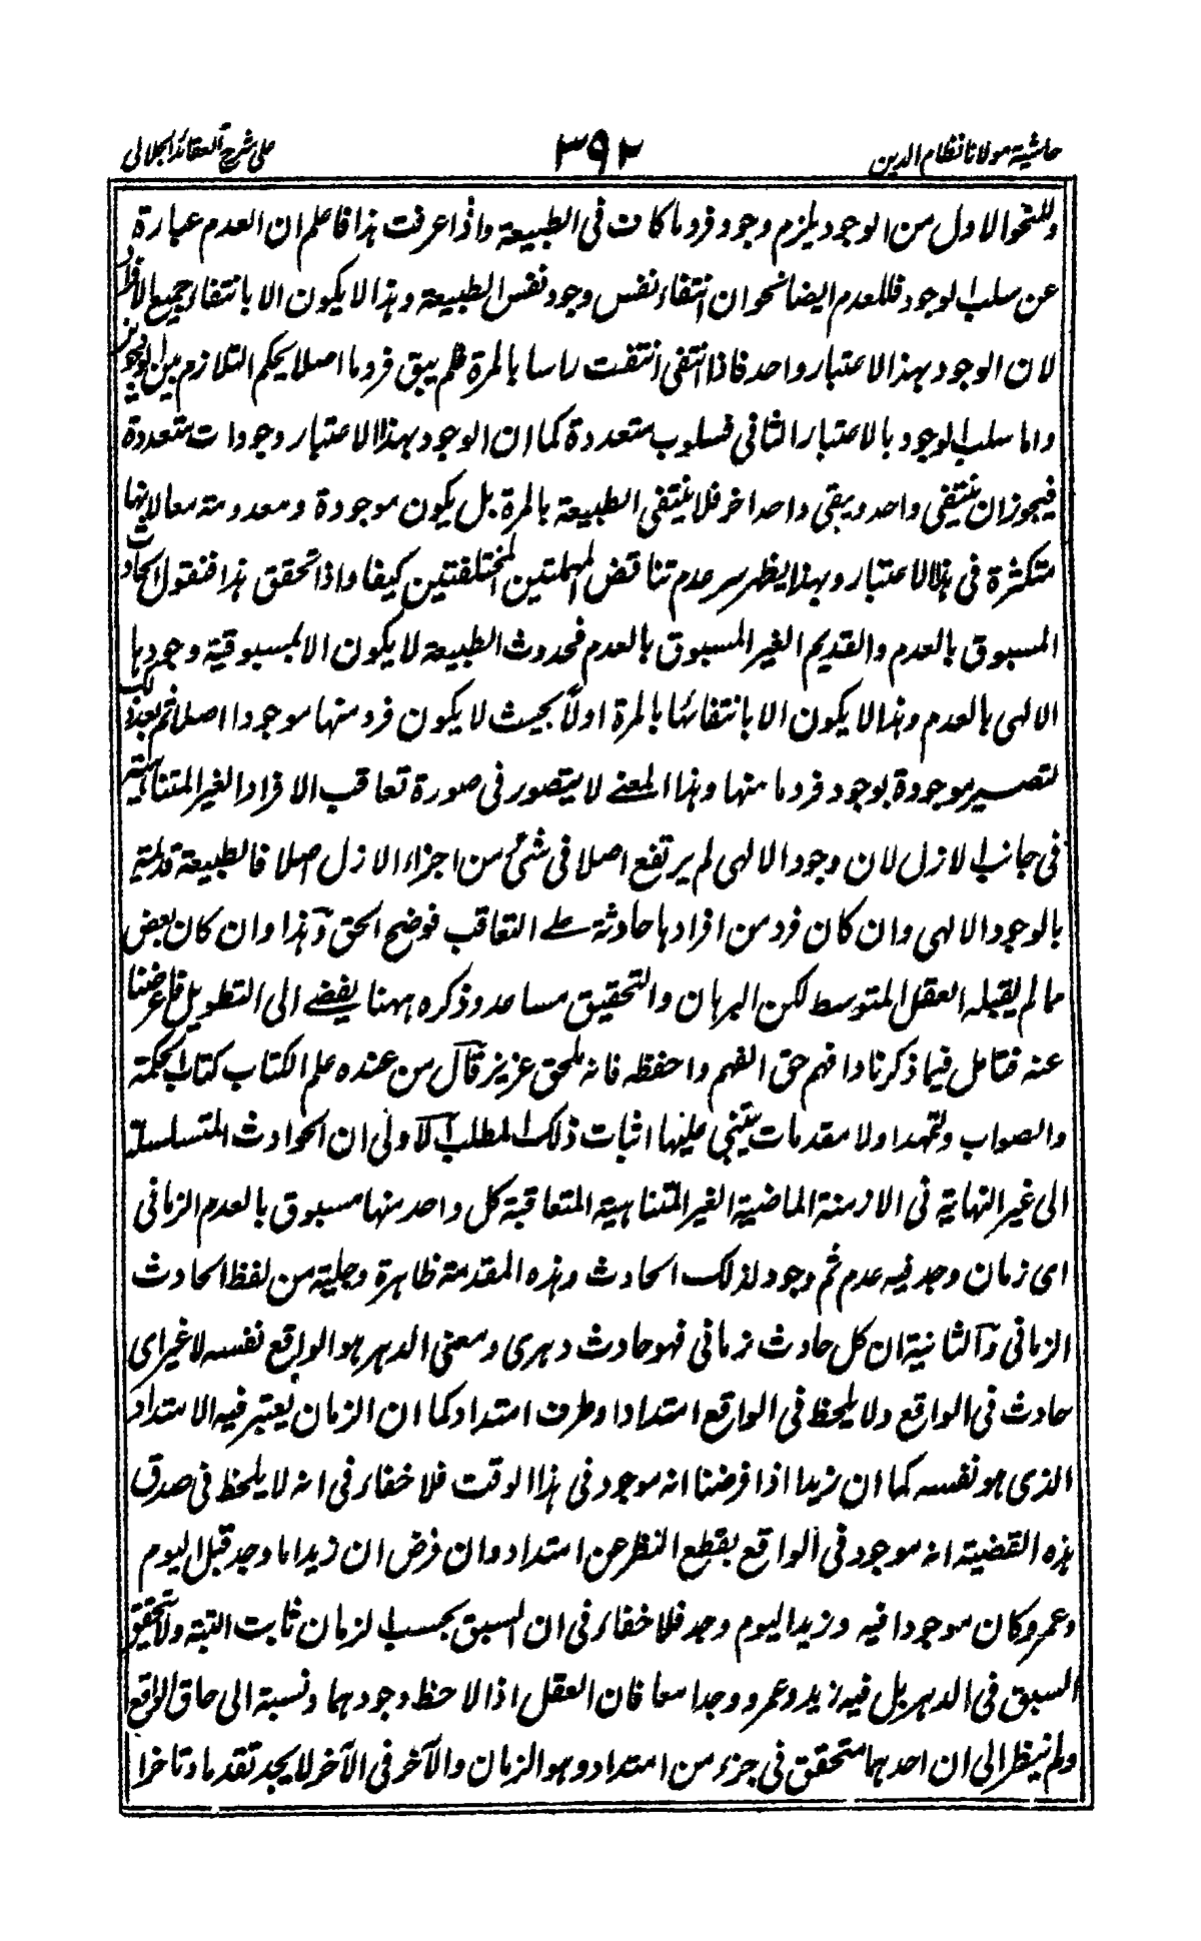 حاشية مولانا نظام الدين
٣٩٢
على شرح العقائد الجلالى
وللنحو الاول من الوجود يلزم وجود فرد ما كانت فى الطبيعة واذا عرفت هذا فاعلم ان العدم عبارة
عن سلب الوجود فللعدم ايضا نحوان انتفاء نفس وجود نفس الطبيعة وهذا لا يكون الا بانتفاء جميع الافراد
لان الوجود بهذا الاعتبار واحد فاذا انتفى انتفت راسا بالمرة فلم يبق فرد ما اصلا بحكم التلازم بين الوجودين
واما سلب الوجود بالاعتبار الثانى فسلوب متعددة كما ان الوجود بهذا الاعتبار وجودات متعددة
فيجوز ان ينتفى واحد ويبقى واحد اخر فلا ينتفى الطبيعة بالمرة بل يكون موجودة ومعدومة معا لانها
متكثرة فى هذا الاعتبار وبهذا يظهر سر عدم تناقض المهملتين المختلفتين كيفا واذا تحقق هذا فنقول الحادث
المسبوق بالعدم والقديم الغير المسبوق بالعدم فحدوث الطبيعة لا يكون الا بمسبوقية وجودها
الالهى بالعدم وهذا لا يكون الا بانتفائها بالمرة اولا بحيث لا يكون فرد منها موجودا اصلا ثم بعد ذلك
تصير موجودة بوجود فرد ما منها وهذا المعنى لا يتصور فى صورة تعاقب الافراد الغير المتناهية
فى جانب الازل لان وجود الالهى لم يرتفع اصلا فى شئ من اجزاء الازل اصلا فالطبيعة قديمة
بالوجود الالهى وان كان فرد من افرادها حادثة على التعاقب فوضح الحق وهذا وان كان بعض
ما لم يقبله العقل المتوسط لكن البرهان والتحقيق مساعد وذكره ههنا يفضى الى التطويل فاعرضنا
عنه فتامل فيما ذكرنا وافهم حق الفهم واحفظه فانه بالحق عزيز قال من عنده علم الكتاب كتاب الحكمة
والصواب ولتمهد اولا مقدمات يبتنى عليها اثبات ذلك المطلب الاولى ان الحوادث المتسلسلة
الى غير النهاية فى الازمنة الماضية الغير المتناهية المتعاقبة كل واحد منها مسبوق بالعدم الزمانى
اى زمان وجد فيه عدم ثم وجود لذلك الحادث وهذه المقدمة ظاهرة وجلية من لفظ الحادث
الزمانى والثانية ان كل حادث زمانى فهو حادث دهرى ومعنى الدهر هو الواقع نفسه لا غير اى
حادث فى الواقع ولا يلحظ فى الواقع امتدادا وطرف امتداد كما ان الزمان يعتبر فيه الامتداد
الذى هو نفسه كما ان زيدا اذا فرضنا انه موجود فى هذا الوقت فلا خفاء فى انه لا يلحظ فى صدق
هذه القضية انه موجود فى الواقع بقطع النظر عن امتداد وان فرض ان زيدا ما وجد قبل اليوم
وعمرو كان موجودا فيه وزيد اليوم وجد فلا خفاء فى ان السبق بحسب الزمان ثابت البتة ولا تحقيق
السبق فى الدهر بل فيه زيد وعمرو وجدا معا فان العقل اذا لاحظ وجودهما ونسبة الى حاق الواقع
ولم ينظر الى ان احدهما متحقق فى جزء من امتداد وهو الزمان والآخر فى الآخر لا يجد تقدما وتاخرا